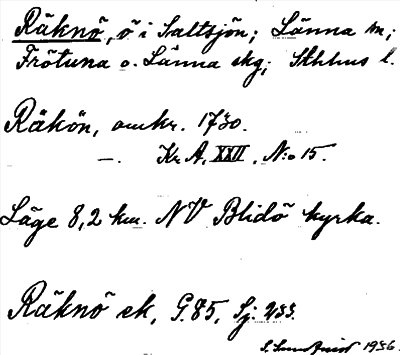 Räknö, ö i Saltsjön; Länna sn;
Frötuna o. Länna skg; Sthlms l.
Räkön, omkr. 1730.
—. Kr A, XXII, N:o 15.
Läge 8,2 km. NV Blidö kyrka.
Räknö ek, G. 85, Sj: 233.
1936.